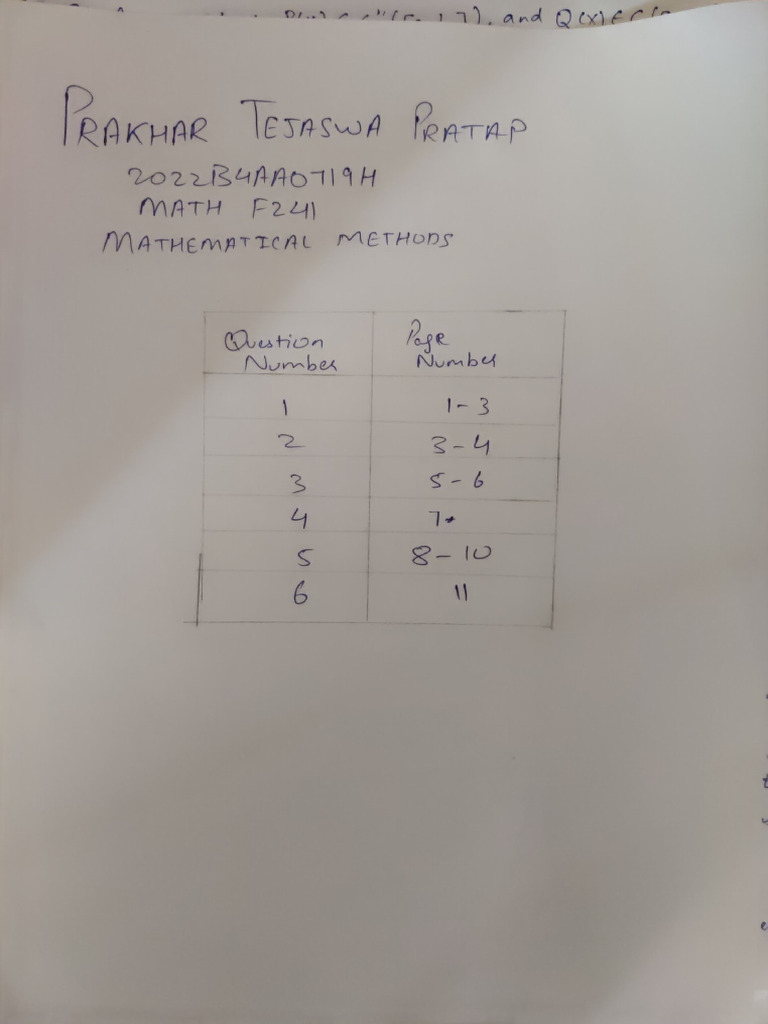 and Q(x) ∈ C
PRAKHAR TEJASWA PRATAP
2022B4AA0719H
MATH F241
MATHEMATICAL METHODS
Question Number Page Number
1 1-3
2 3-4
3 5-6
4 7
5 8-10
6 11